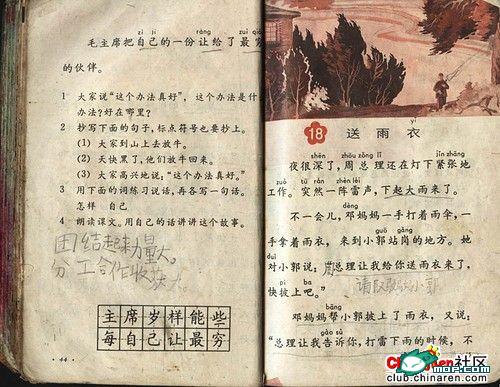 zì jǐ ràng zuì qióng
毛主席把自己的一份让给了最穷
的伙伴。
1 大家说“这个办法真好”，这个办法是什
办法？好在哪里？
2 抄写下面的句子，标点符号也要抄上。
(1) 大家到山上去放牛。
(2) 天快黑了，他们放牛回来。
(3) 大家高兴地说：“这个办法真好。”
3 用下面的词练习说话，再各写一句话。
怎样 自己
4 朗读课文。用自己的话讲讲这个故事。
团结起来力量大。
分工合作收获大。
主席岁样能些
每自己让最穷
·44·
yī
18 送雨衣
shēn zhōu zǒng lǐ jǐn zhāng
夜很深了，周总理还在灯下紧张地
zuò tū rán zhèn léi
工作。突然一阵雷声，下起大雨来了。
dèng
不一会儿，邓妈妈一手打着雨伞，一
guō gǎng
手拿着雨衣，来到小郭站岗的地方。她
duì
对小郭说：“周总理让我给你送雨衣来了，
pī ba
快披上吧。”
邓妈妈帮小郭披上了雨衣，又说：
gào su
“总理让我告诉你，打雷下雨的时候，不
ChinaRen社区
MOP.com
club.chinaren.com